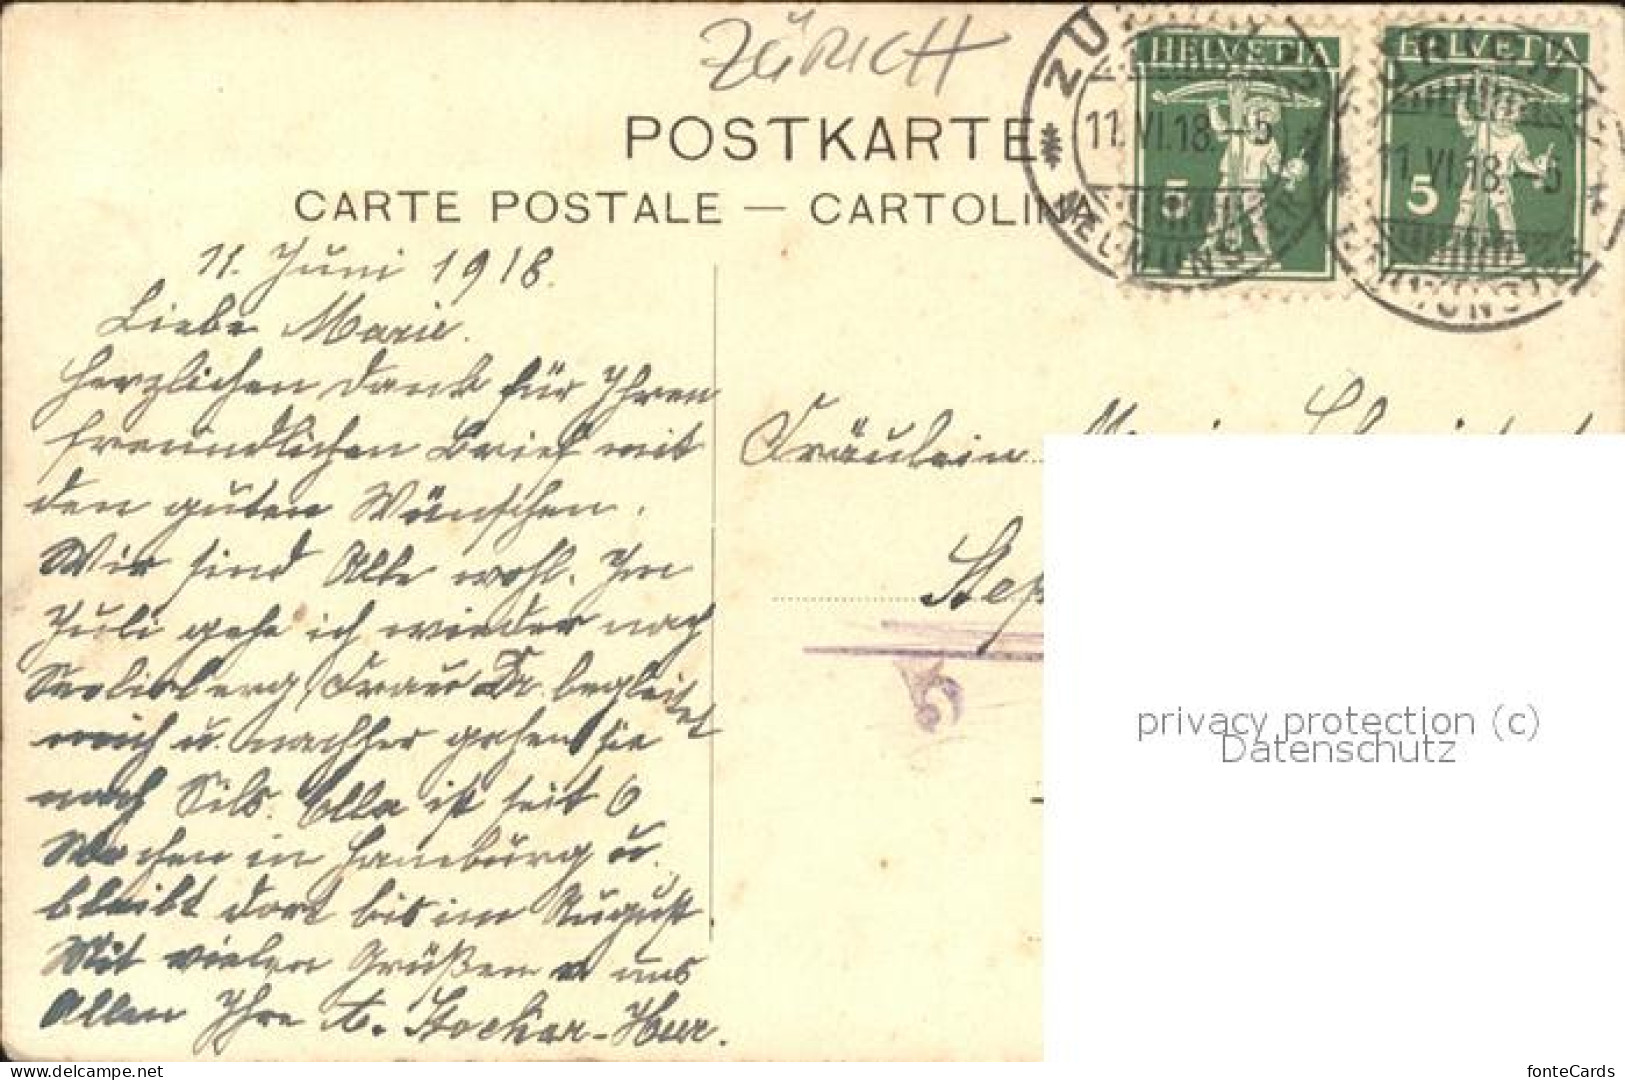 ZÜRICH
POSTKARTE
CARTE POSTALE — CARTOLINA
HELVETIA
5
HELVETIA
5
11.VI.18.-5
11.VI.18.-5
11. Juni 1918.
Liebe Marie.
Herzlichen Dank für Ihren
freundlichen Brief mit
den guten Wünschen.
Wir sind Alle wohl. Im
Juli gehe ich wieder nach
Seelisberg, Frau Dr. begleitet
mich u. nachher gehen sie
nach Sils. Ella ist seit 6
Wochen in Hamburg u.
bleibt dort bis im August.
Mit vielen Grüßen v. uns
Allen Ihre A. Stockar-Heer.
Fräulein Marie
5
privacy protection (c)
Datenschutz
www.delcampe.net
fonteCards